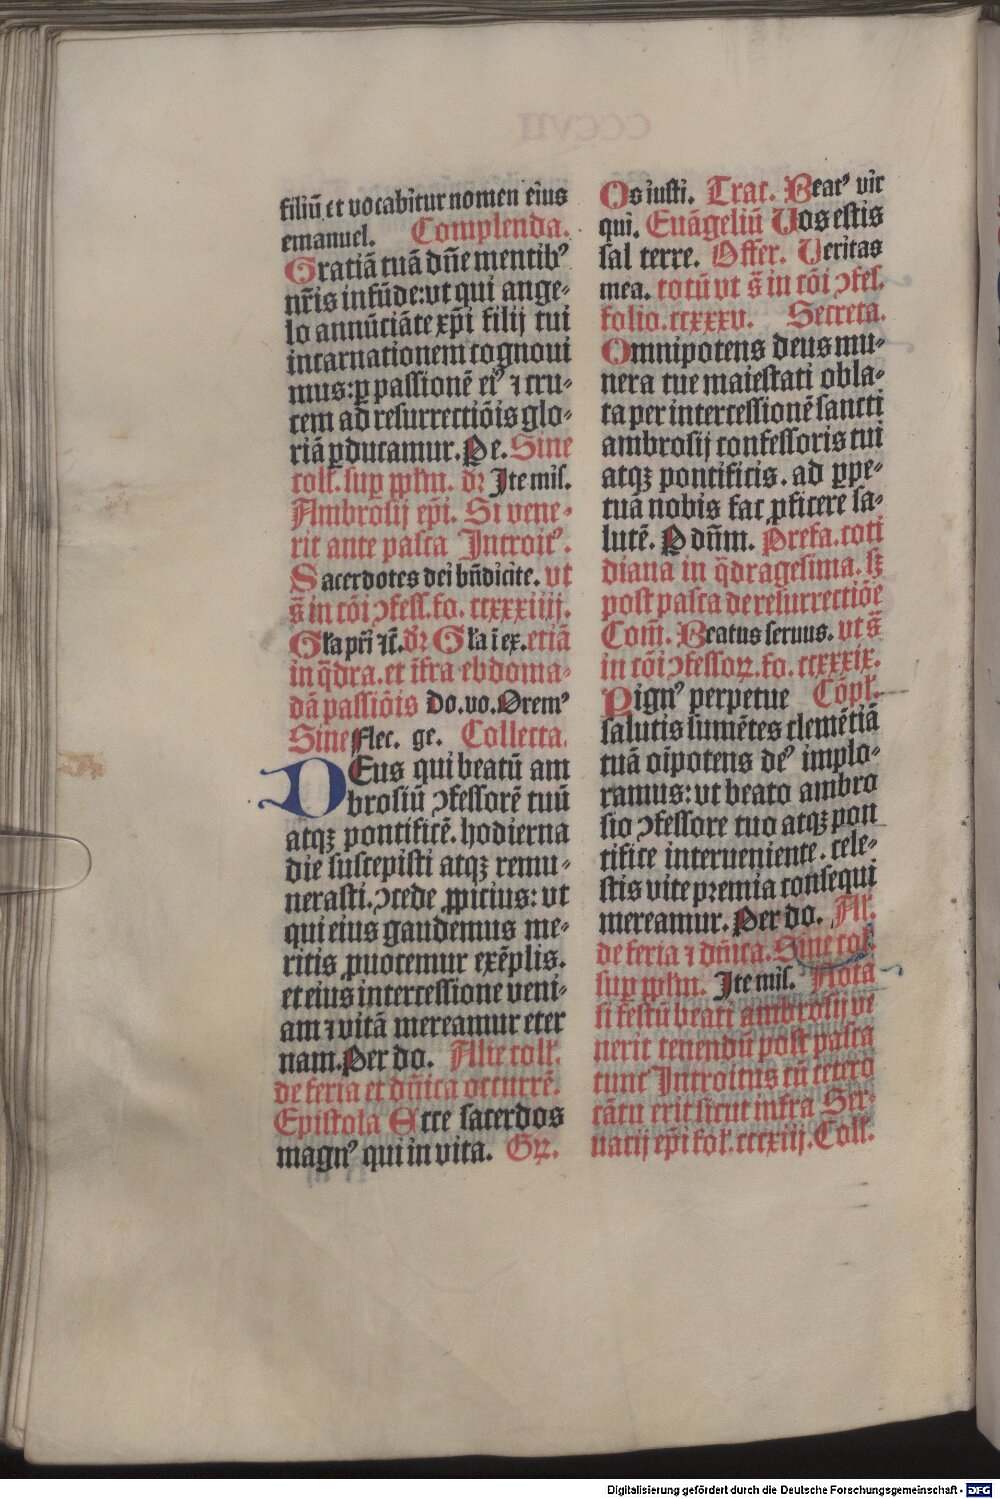 filiū et vocabitur nomen eius
emanuel. Complenda.
Gratiā tuā dn̄e mentibꝰ
nr̄is infūde: vt qui ange-
lo annūciāte xp̄i filij tui
incarnationem cognoui
mus: ꝑ passionē eiꝰ ⁊ cru-
cem ad resurrectiōis glo-
riā ꝑducamur. Pe. Sine
coll. suꝑ pplm̄. dr Ite mis.
Ambrosij ep̄i. Si vene-
rit ante pasca Introitꝰ.
Sacerdotes dei bn̄dicite. vt
s̄ in cōi ꝯfess. fo. ccxxxiiij.
Gl̄a pr̄i ⁊ f̄. dr Gl̄a ī ex. etiā
in q̄dra. et īfra ebdoma-
dā passiōis Do. vo. Oremꝰ
Sine Flec. ge. Collecta.
DEus qui beatū am
brosiū ꝯfessorē tuū
atqꝫ pontificē. hodierna
die suscepisti atqꝫ remu-
nerasti. ꝯcede ꝓpicius: vt
qui eius gaudemus me-
ritis ꝓuocemur exēplis.
et eius intercessione veni-
am ⁊ vitā mereamur eter
nam. Per do. Alie coll.
de feria et dn̄ica occurrē.
Epistola Ecce sacerdos
magnꝰ qui in vita. Gꝝ.
Os iusti. Trac. Beatꝰ vir
qui. Euāgeliū Vos estis
sal terre. Offer. Veritas
mea. totū vt s̄ in cōi ꝯfes.
folio. ccxxxv. Secreta.
Omnipotens deus mu-
nera tue maiestati obla-
ta per intercessionē sancti
ambrosij confessoris tui
atqꝫ pontificis. ad ꝑpe-
tuā nobis fac ꝓficere sa-
lutē. P dn̄m. Prefa. coti
diana in q̄dragesima. sꝫ
post pasca de resurrectiōe
Com̄. Beatus seruus. vt s̄
in cōi ꝯfessoꝝ. fo. ccxxxix.
Pignꝰ perpetue Cōpl.
salutis sumētes clemētiā
tuā oīpotens deꝰ implo-
ramus: vt beato ambro
sio ꝯfessore tuo atqꝫ pon
tifice interueniente. cele-
stis vite premia consequi
mereamur. Per do. Al.
de feria ⁊ dn̄ica. Sine col.
suꝑ pplm̄. Ite mis. Nota
si festū beati ambrosij ve
nerit tenendū post pasca
tunc Introitus cū cetero
cātu erit sicut infra Ser-
uacij ep̄i fol. cccxiij. Coll.
Digitalisierung gefördert durch die Deutsche Forschungsgemeinschaft - DFG